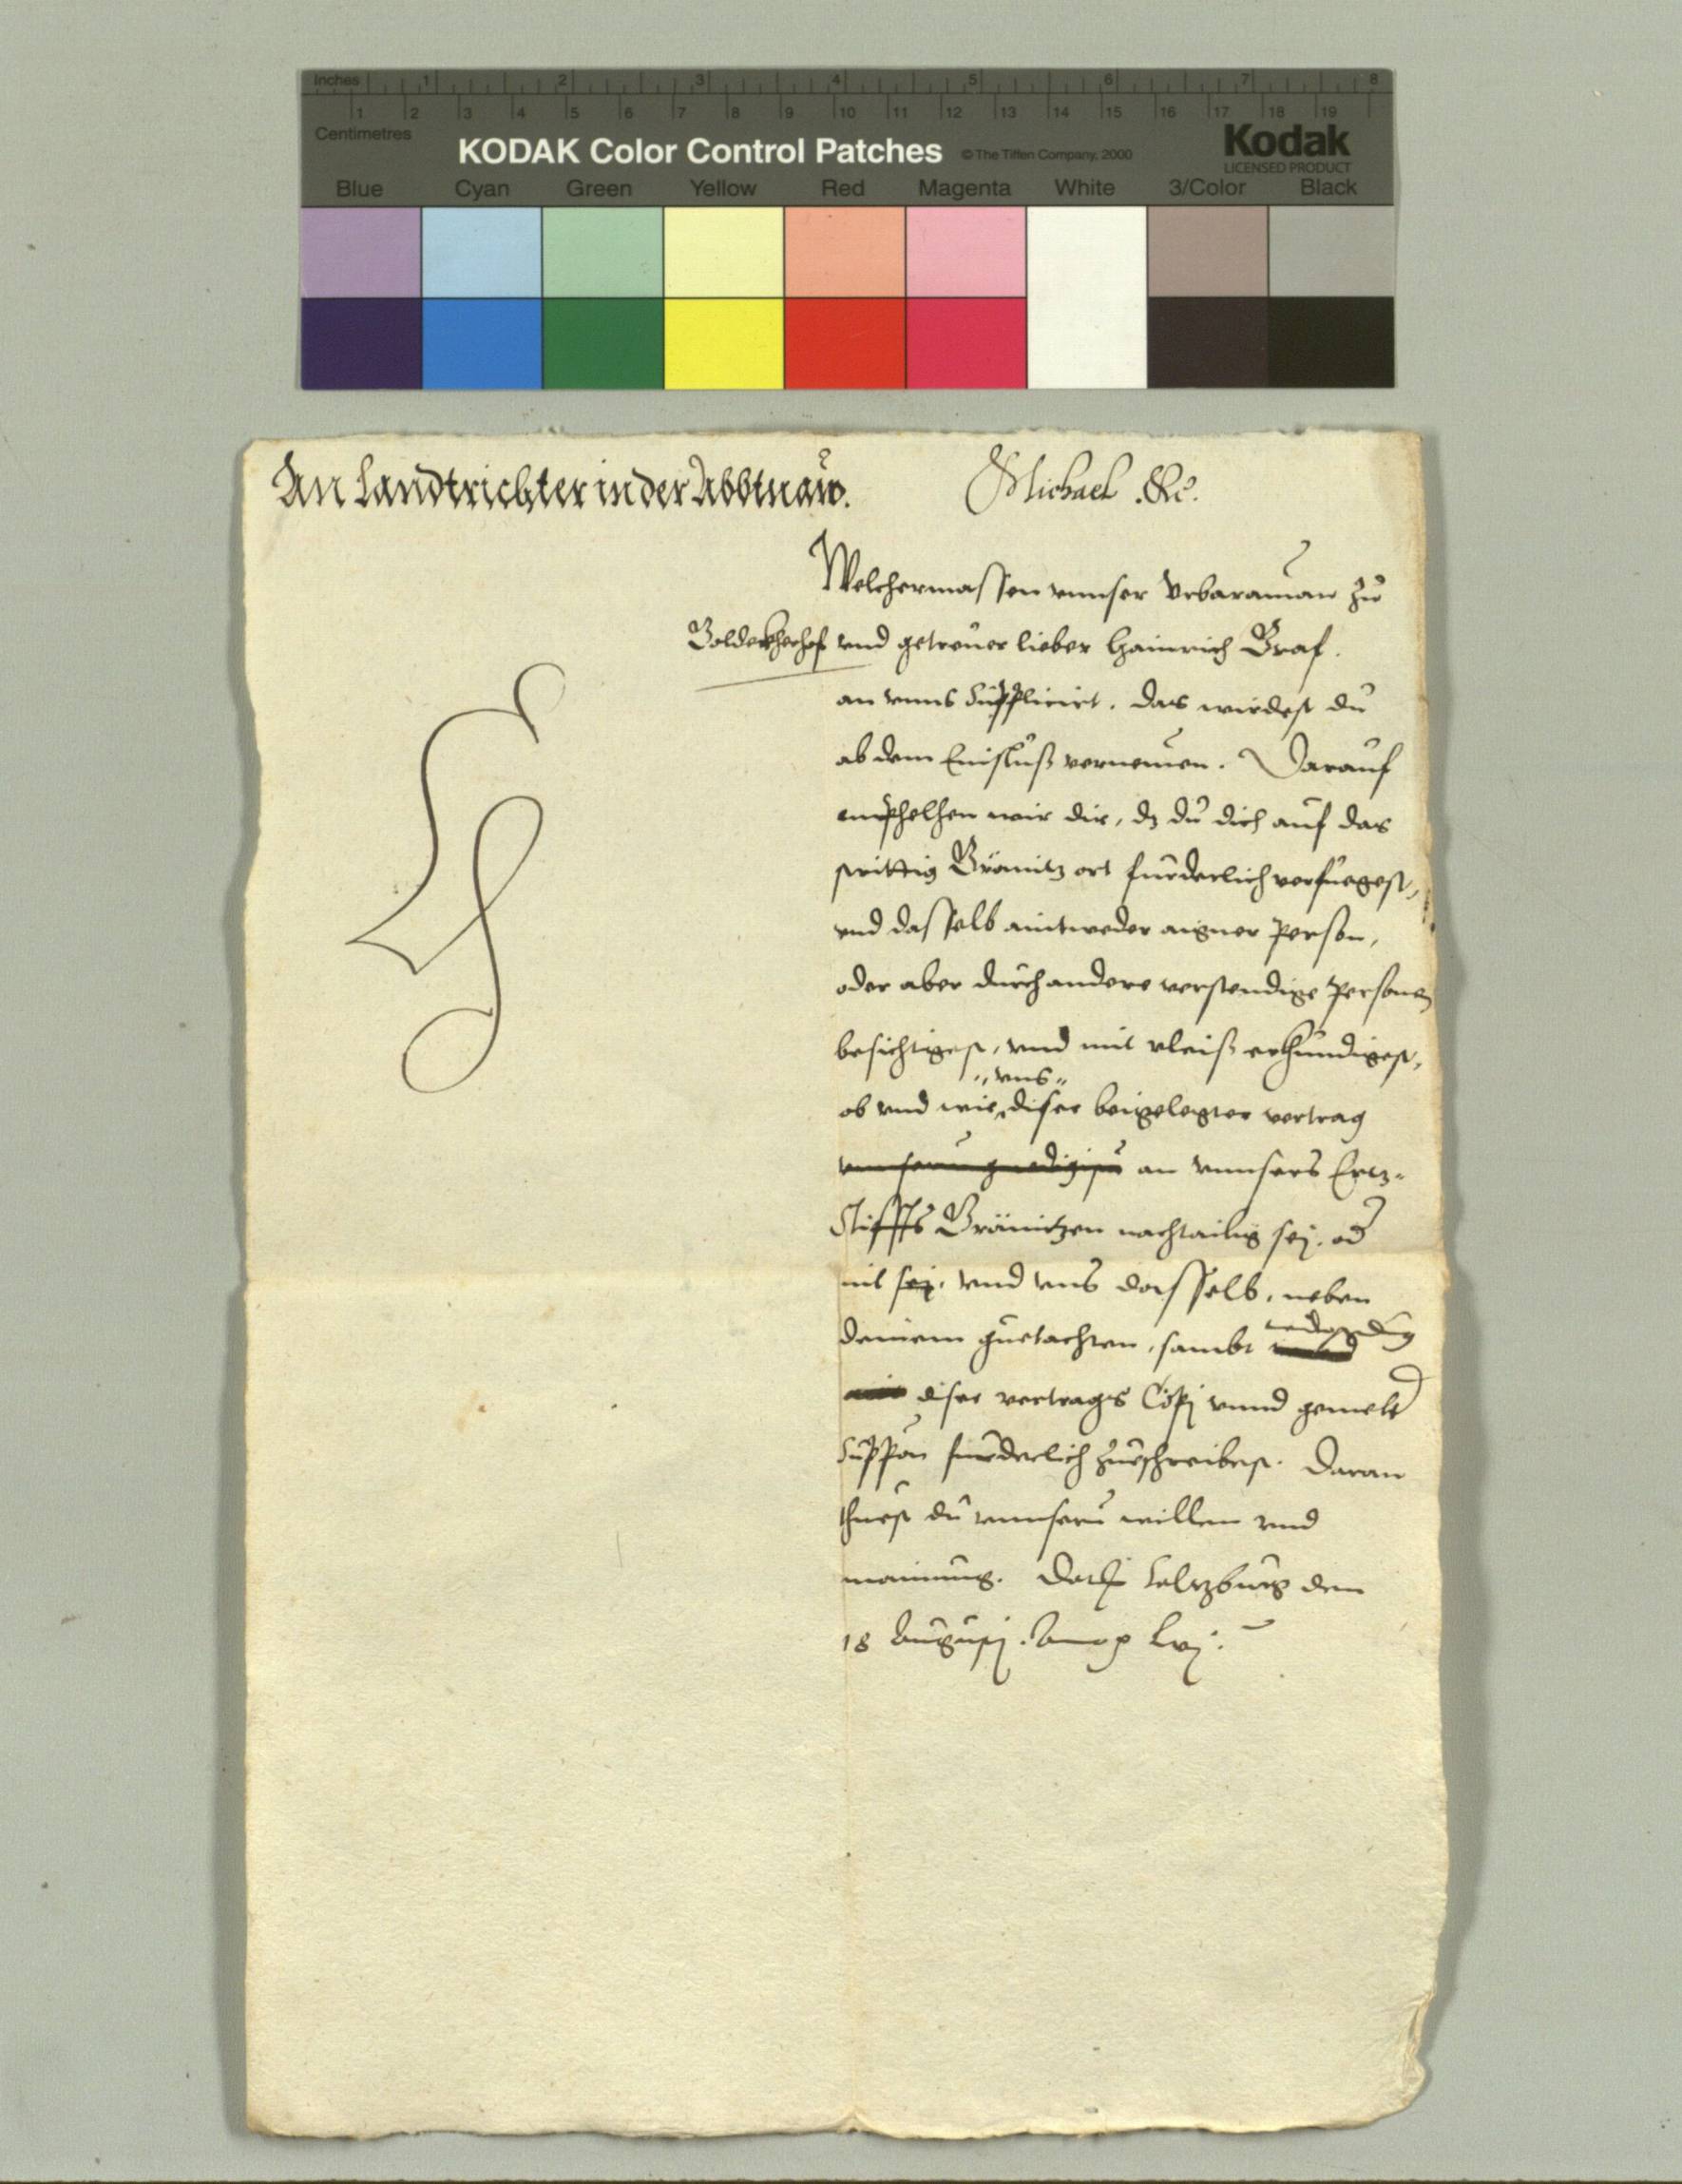 Inches 1 2 3 4 5 6 7 8
1 2 3 4 5 6 7 8 9 10 11 12 13 14 15 16 17 18 19
Centimetres
KODAK Color Control Patches © The Tiffen Company, 2000 Kodak
LICENSED PRODUCT
Blue Cyan Green Yellow Red Magenta White 3/Color Black
An Landtrichter in der Abbtnaw. Michael &c.
Welchermassen unnser Urbaraman zu
Golderkherhof und getreuer lieber Hainrich Graf.
an unns Supplicirt. das wirdest du
ab dem Einschluß vernemen. Darauf
emphelhen wir dir, dz du dich auf das
strittig Gränitz ort furderlich verfuegest,
und dasselb aintweder aigner Person,
oder aber durch andere verstendige Personen
besichtigest, und mit vleiß erkhundigest,
"uns"
ob und wie diser beigelegter vertrag
unserm gnedigisten an unnsers Ertz-
Stiffts Gränitzen nachtailig sej. od
nit sej. und uns dasselb, neben
deinem guetachten, sambt
diser vertrags Copj unnd gemelt
Suppon furderlich zueschreibest. Daran
thuest du unnsern willen und
mainung. Dat Saltzburg den
18 Augustj. Anno lvj.